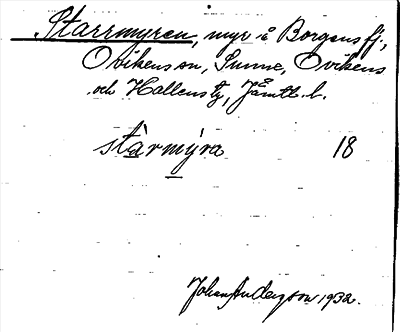 Starrmyren, myr å Borgensfj.,
Ovikens sn, Sunne, Ovikens
och Hallens tg, Jämtl. l.
stàrmýra 18
Johan Anderson 1932.